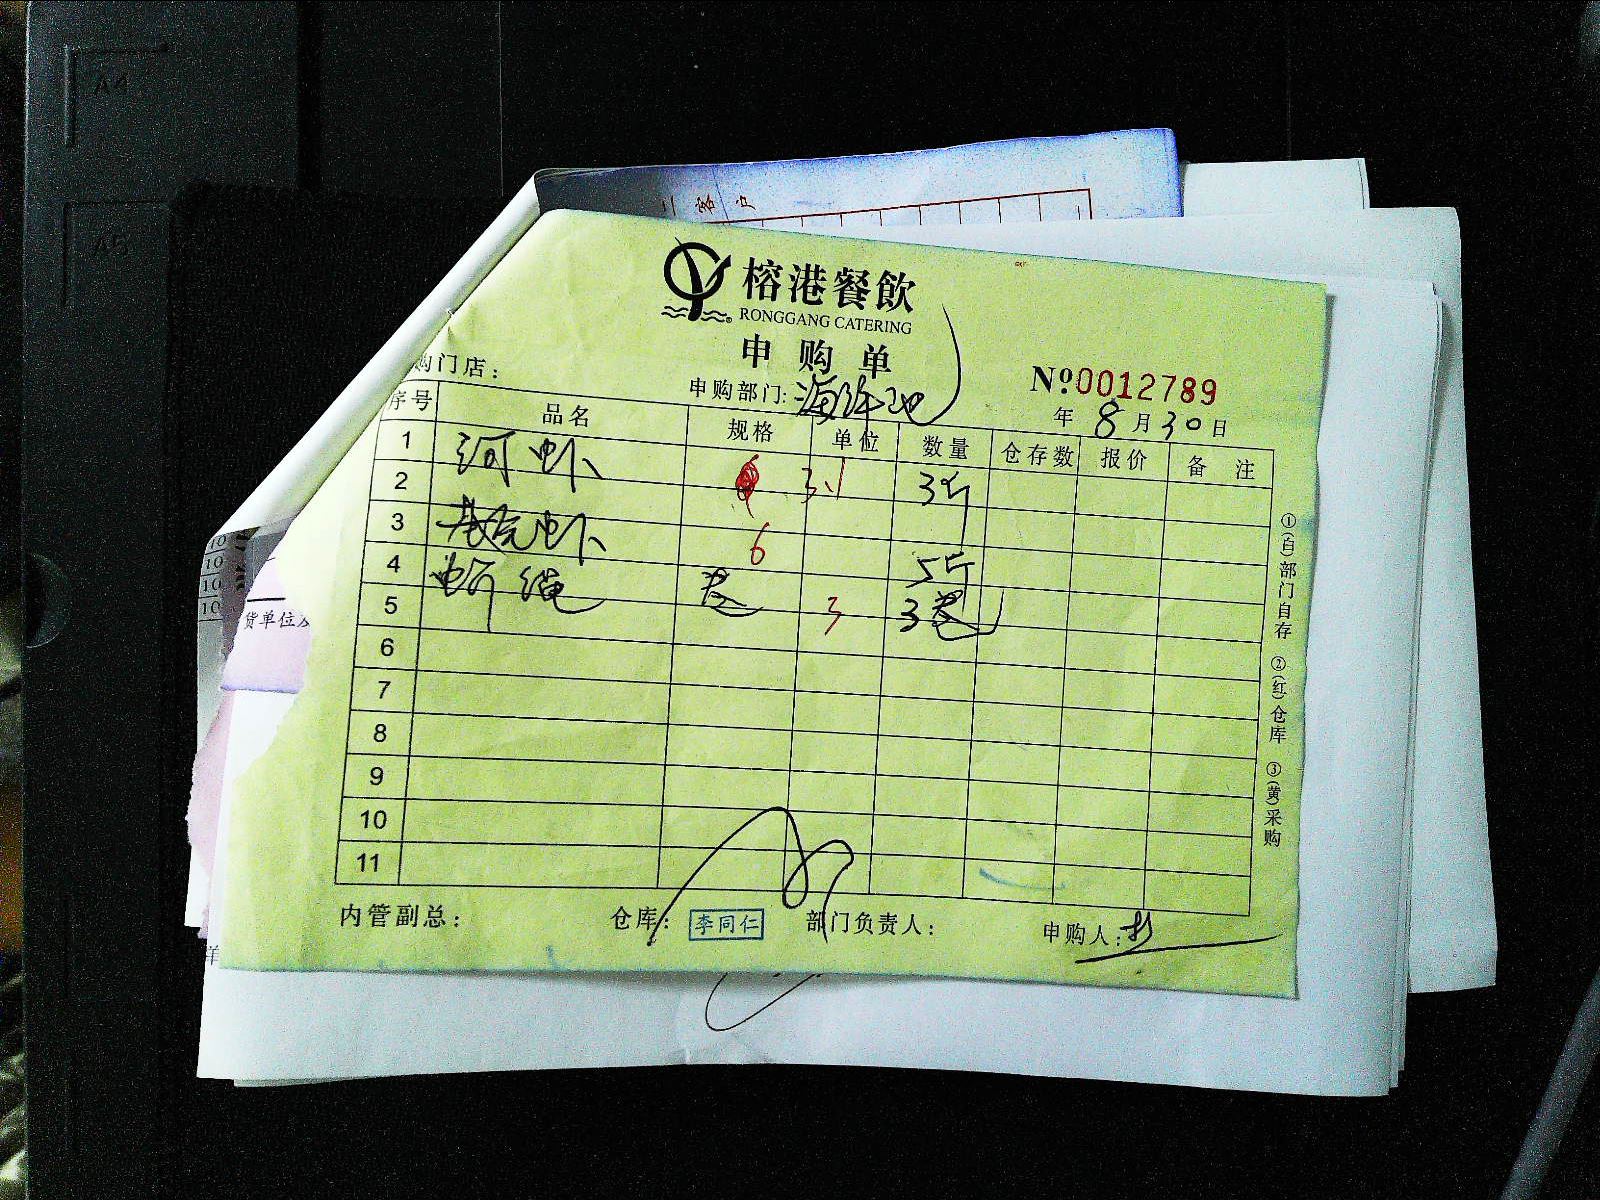 A4
A5
客户
榕港餐飲
RONGGANG CATERING
申购单
购门店：
申购部门: 海鲜池
Nº0012789
年 8 月 30 日
序号 品名 规格 单位 数量 仓存数 报价 备注
1 河虾 3斤
2
3 基尾虾 6 5斤
4 蟹绳 3
5
6
7
8
9
10
11
①(白)部门自存 ②(红)仓库 ③(黄)采购
内管副总： 仓库： 李同仁 部门负责人： 申购人：
10
10
10
10
货单位及